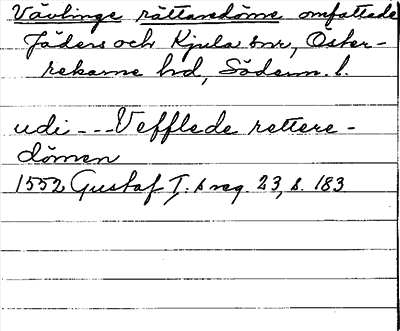 Vävlinge rättaredöme omfattade
Jäders och Kjula snr, Öster-
rekarne hd, Söderm. l.
udi --- Vefflede rettere-
dömen
1552 Gustaf I:s reg. 23, s. 183